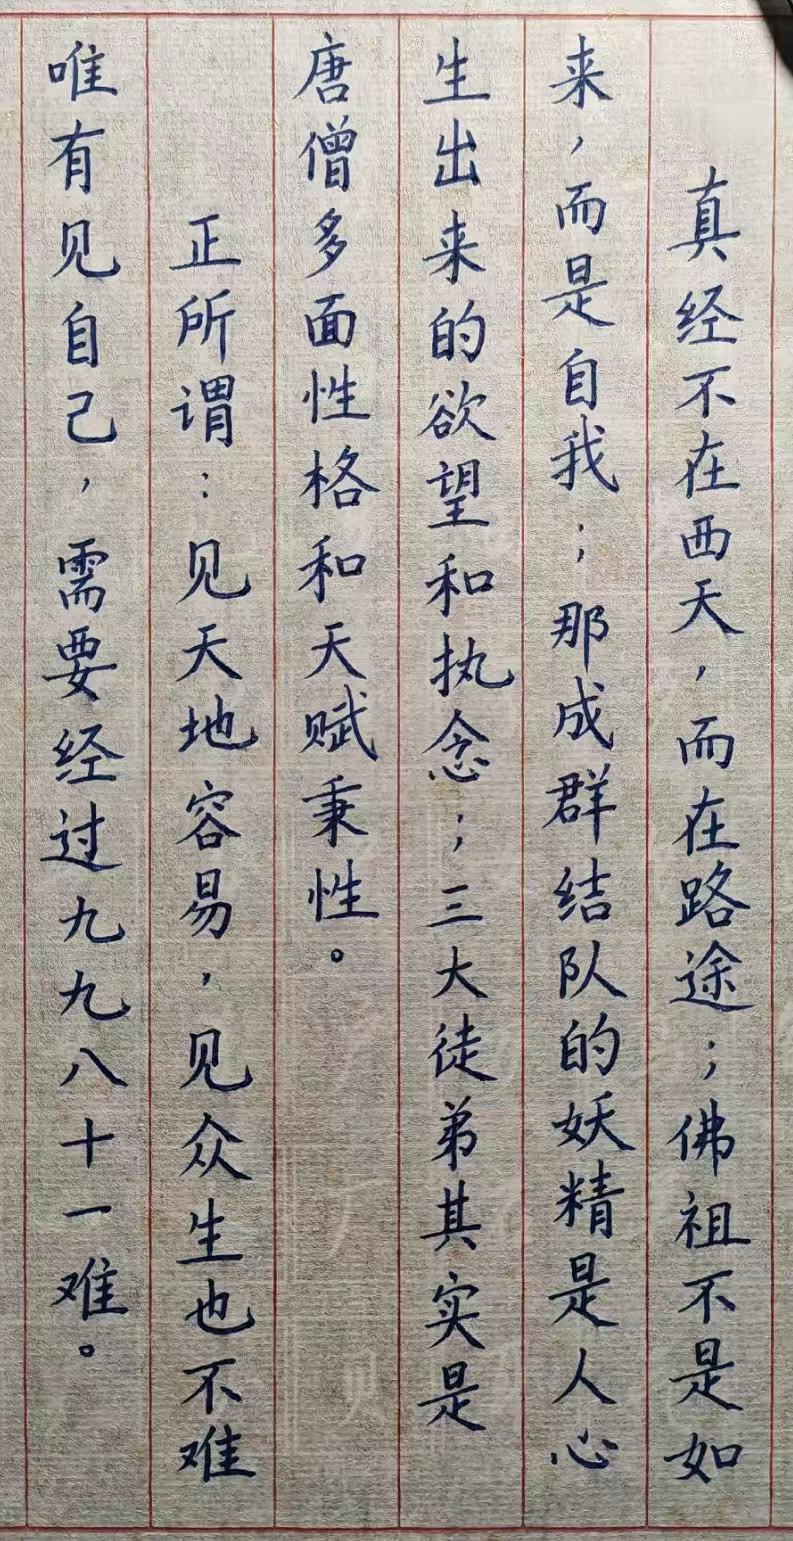 真经不在西天，而在路途；佛祖不是如
来，而是自我；那成群结队的妖精是人心
生出来的欲望和执念；三大徒弟其实是
唐僧多面性格和天赋秉性。
正所谓：见天地容易，见众生也不难
唯有见自己，需要经过九九八十一难。